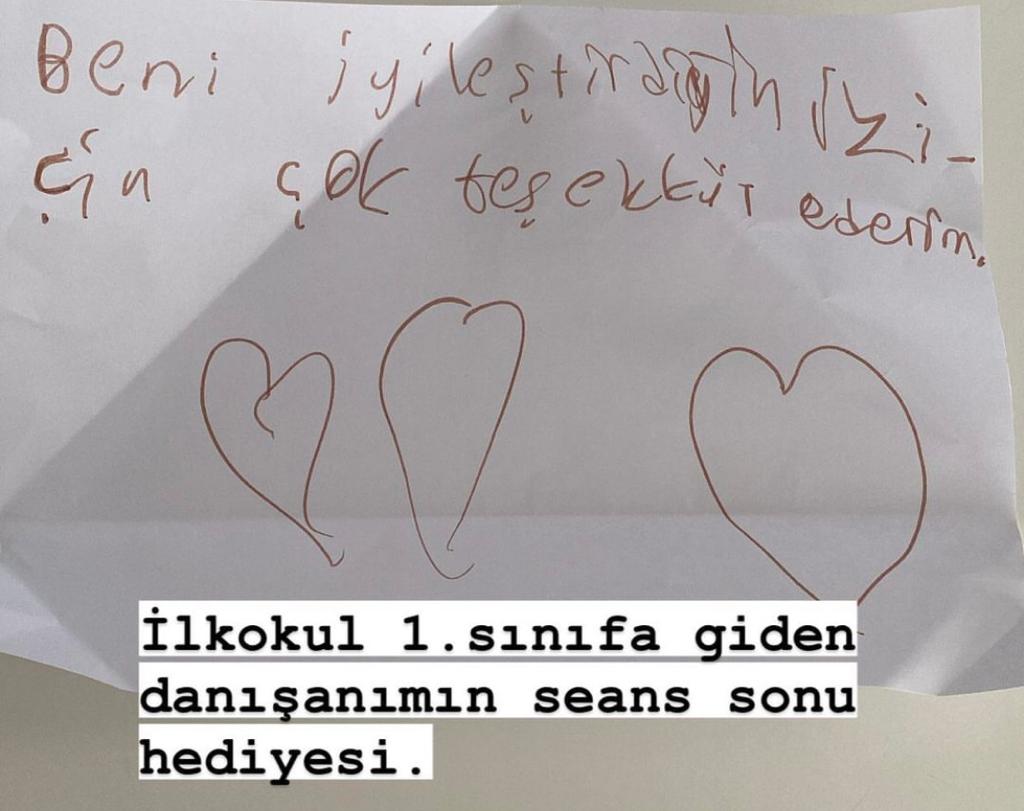 Beni iyileştirdiğin İzi-
çin çok teşekkür ederim.
İlkokul 1.sınıfa giden
danışanımın seans sonu
hediyesi.